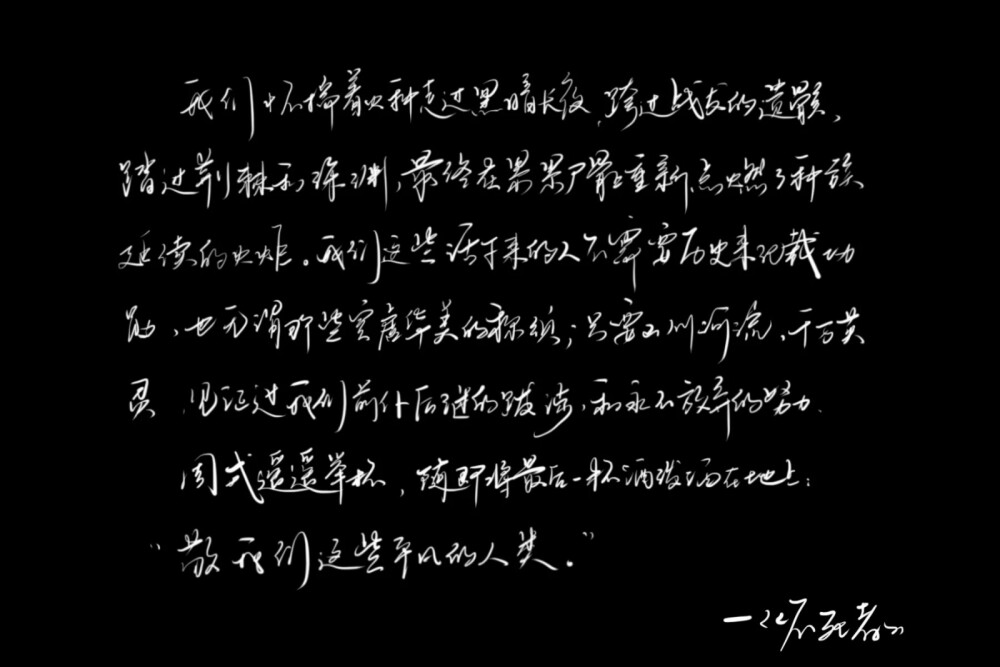 我们怀揣着火种走过黑暗长夜,跨过战友的遗骸,
踏过荆棘和深渊,最终在累累尸骸重新点燃了种族
延续的火炬。我们这些活下来的人不需要历史来记载功
勋,也无谓那些空虚华美的称颂;只要山川河流,千万英
灵,见证过我们前仆后继的跋涉,和永不放弃的努力。
周式遥遥举杯,随即将最后一杯酒泼洒在地上:
“敬我们这些平凡的人类。”
—《不死者》